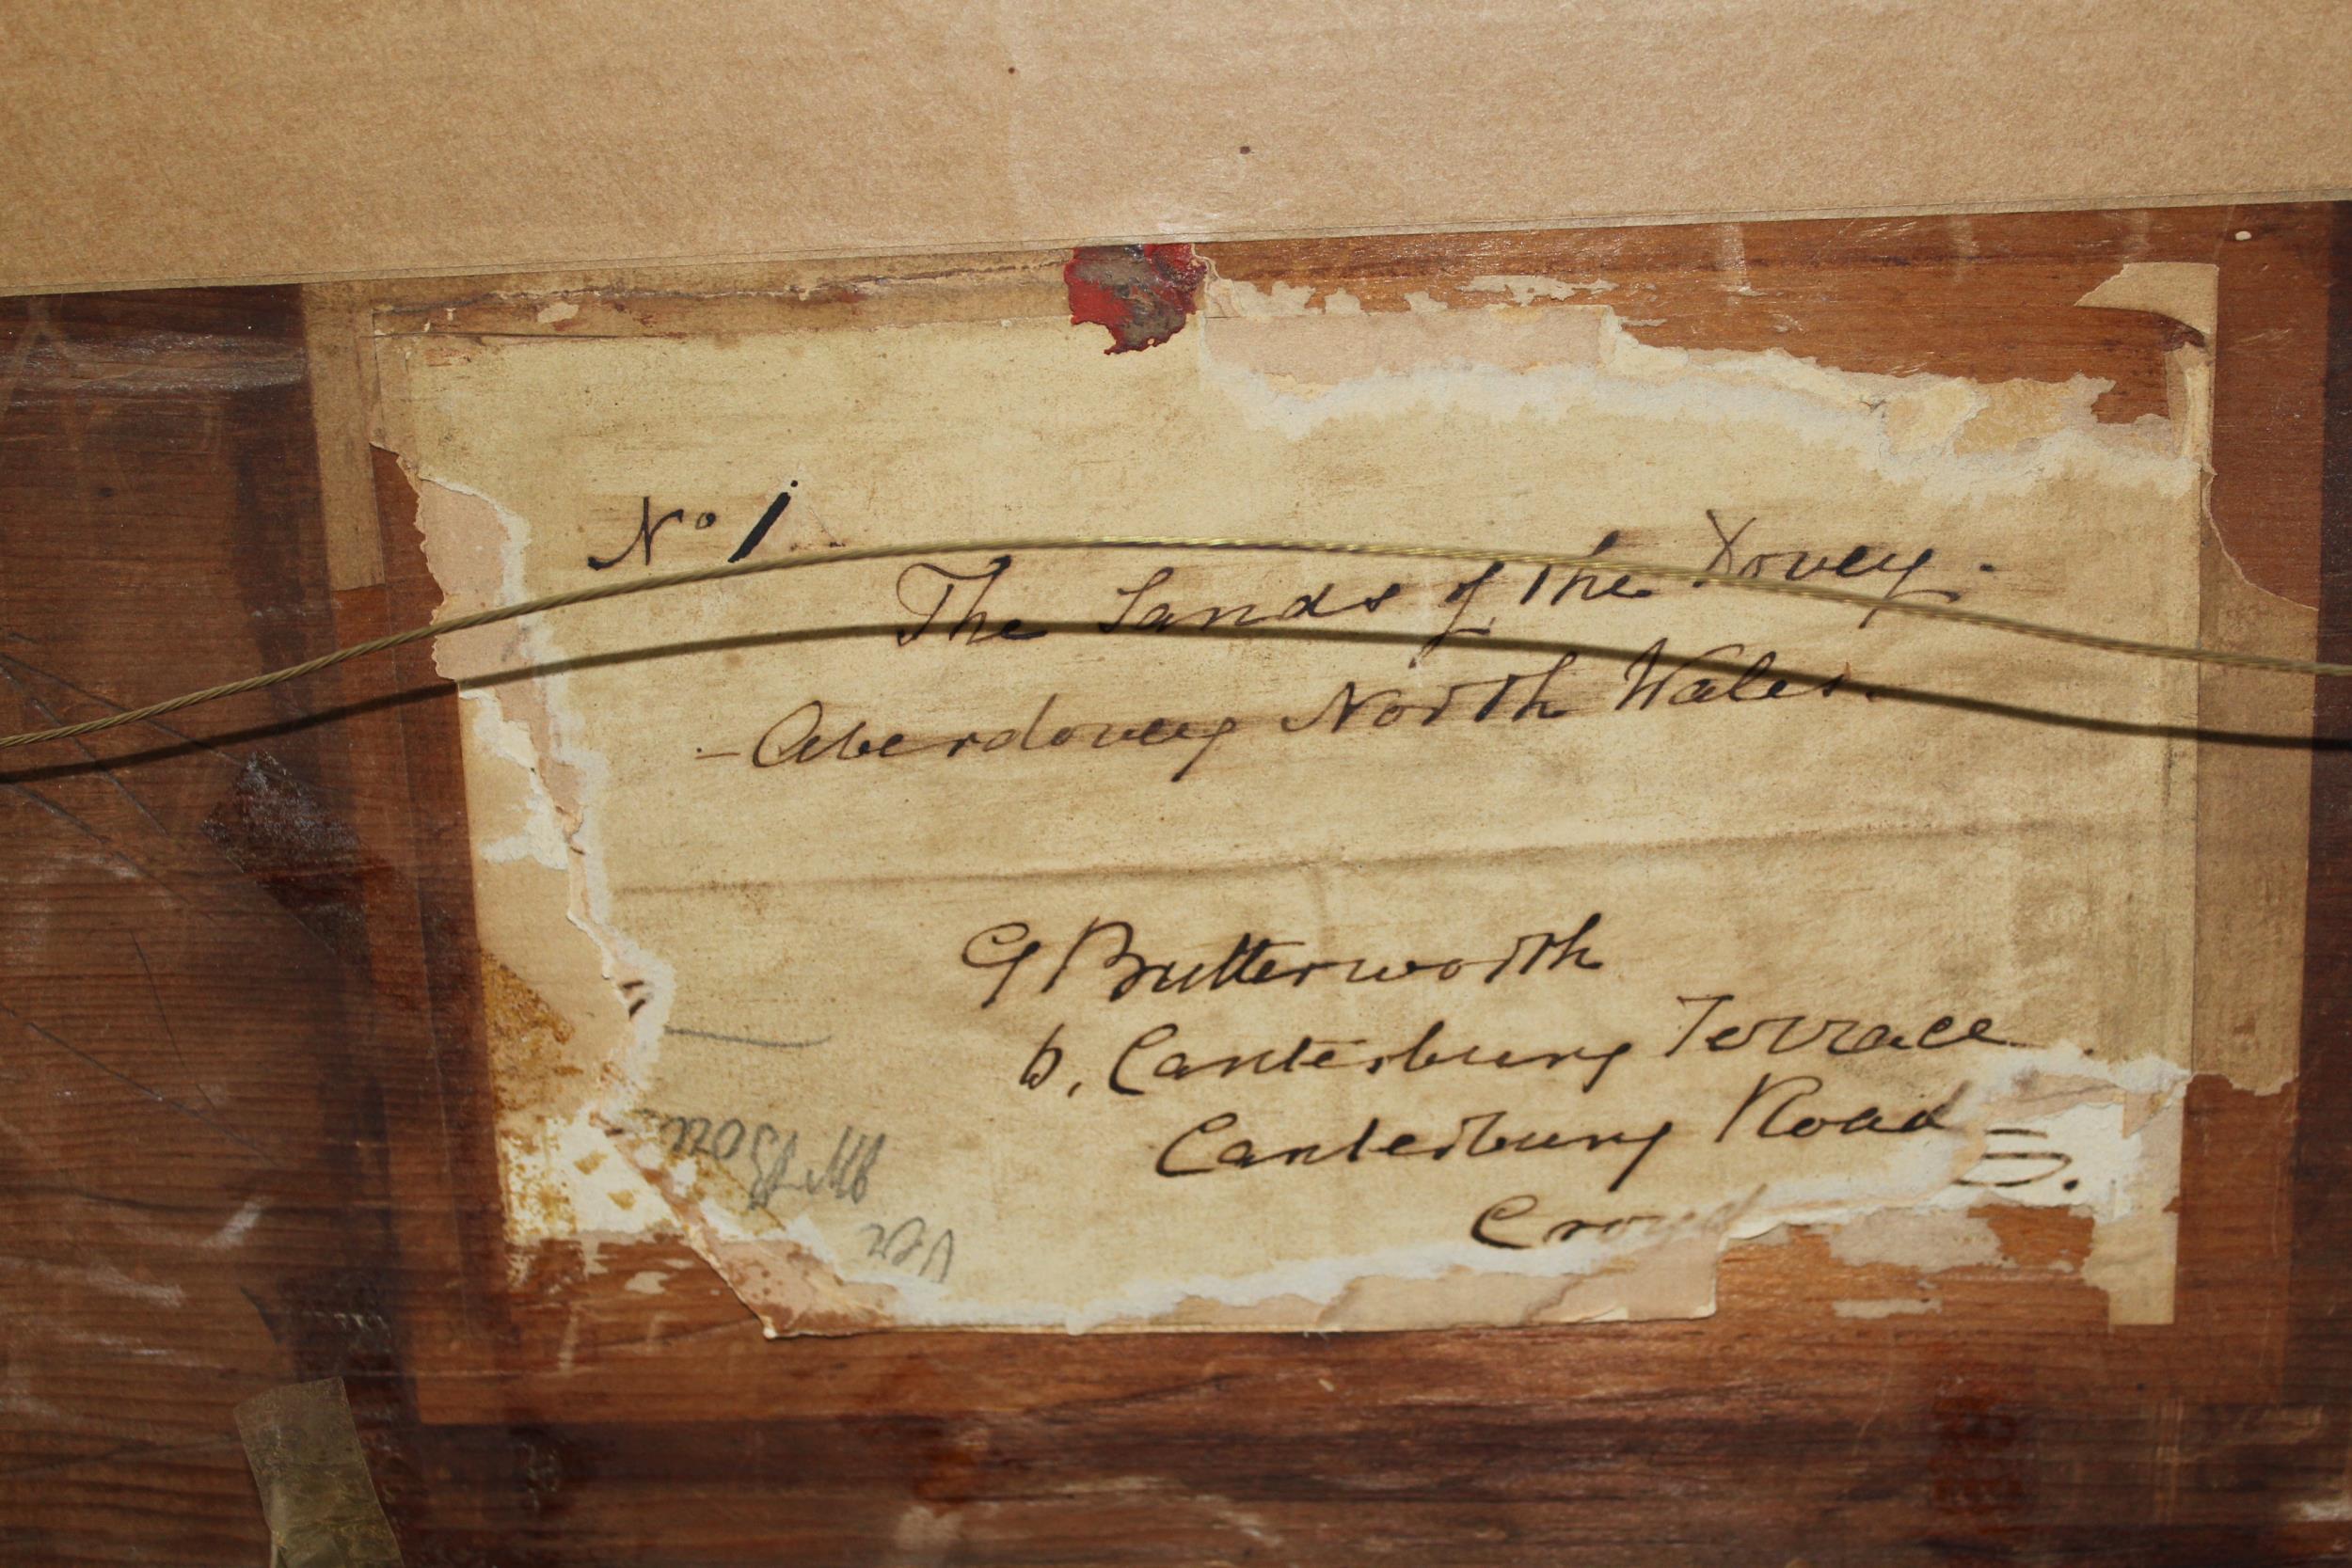 No 1.
The Sands of the Dovey.
- Aberdovey North Wales.
G Butterworth
6, Canterbury Terrace
Canterbury Road
Croyd
Mr